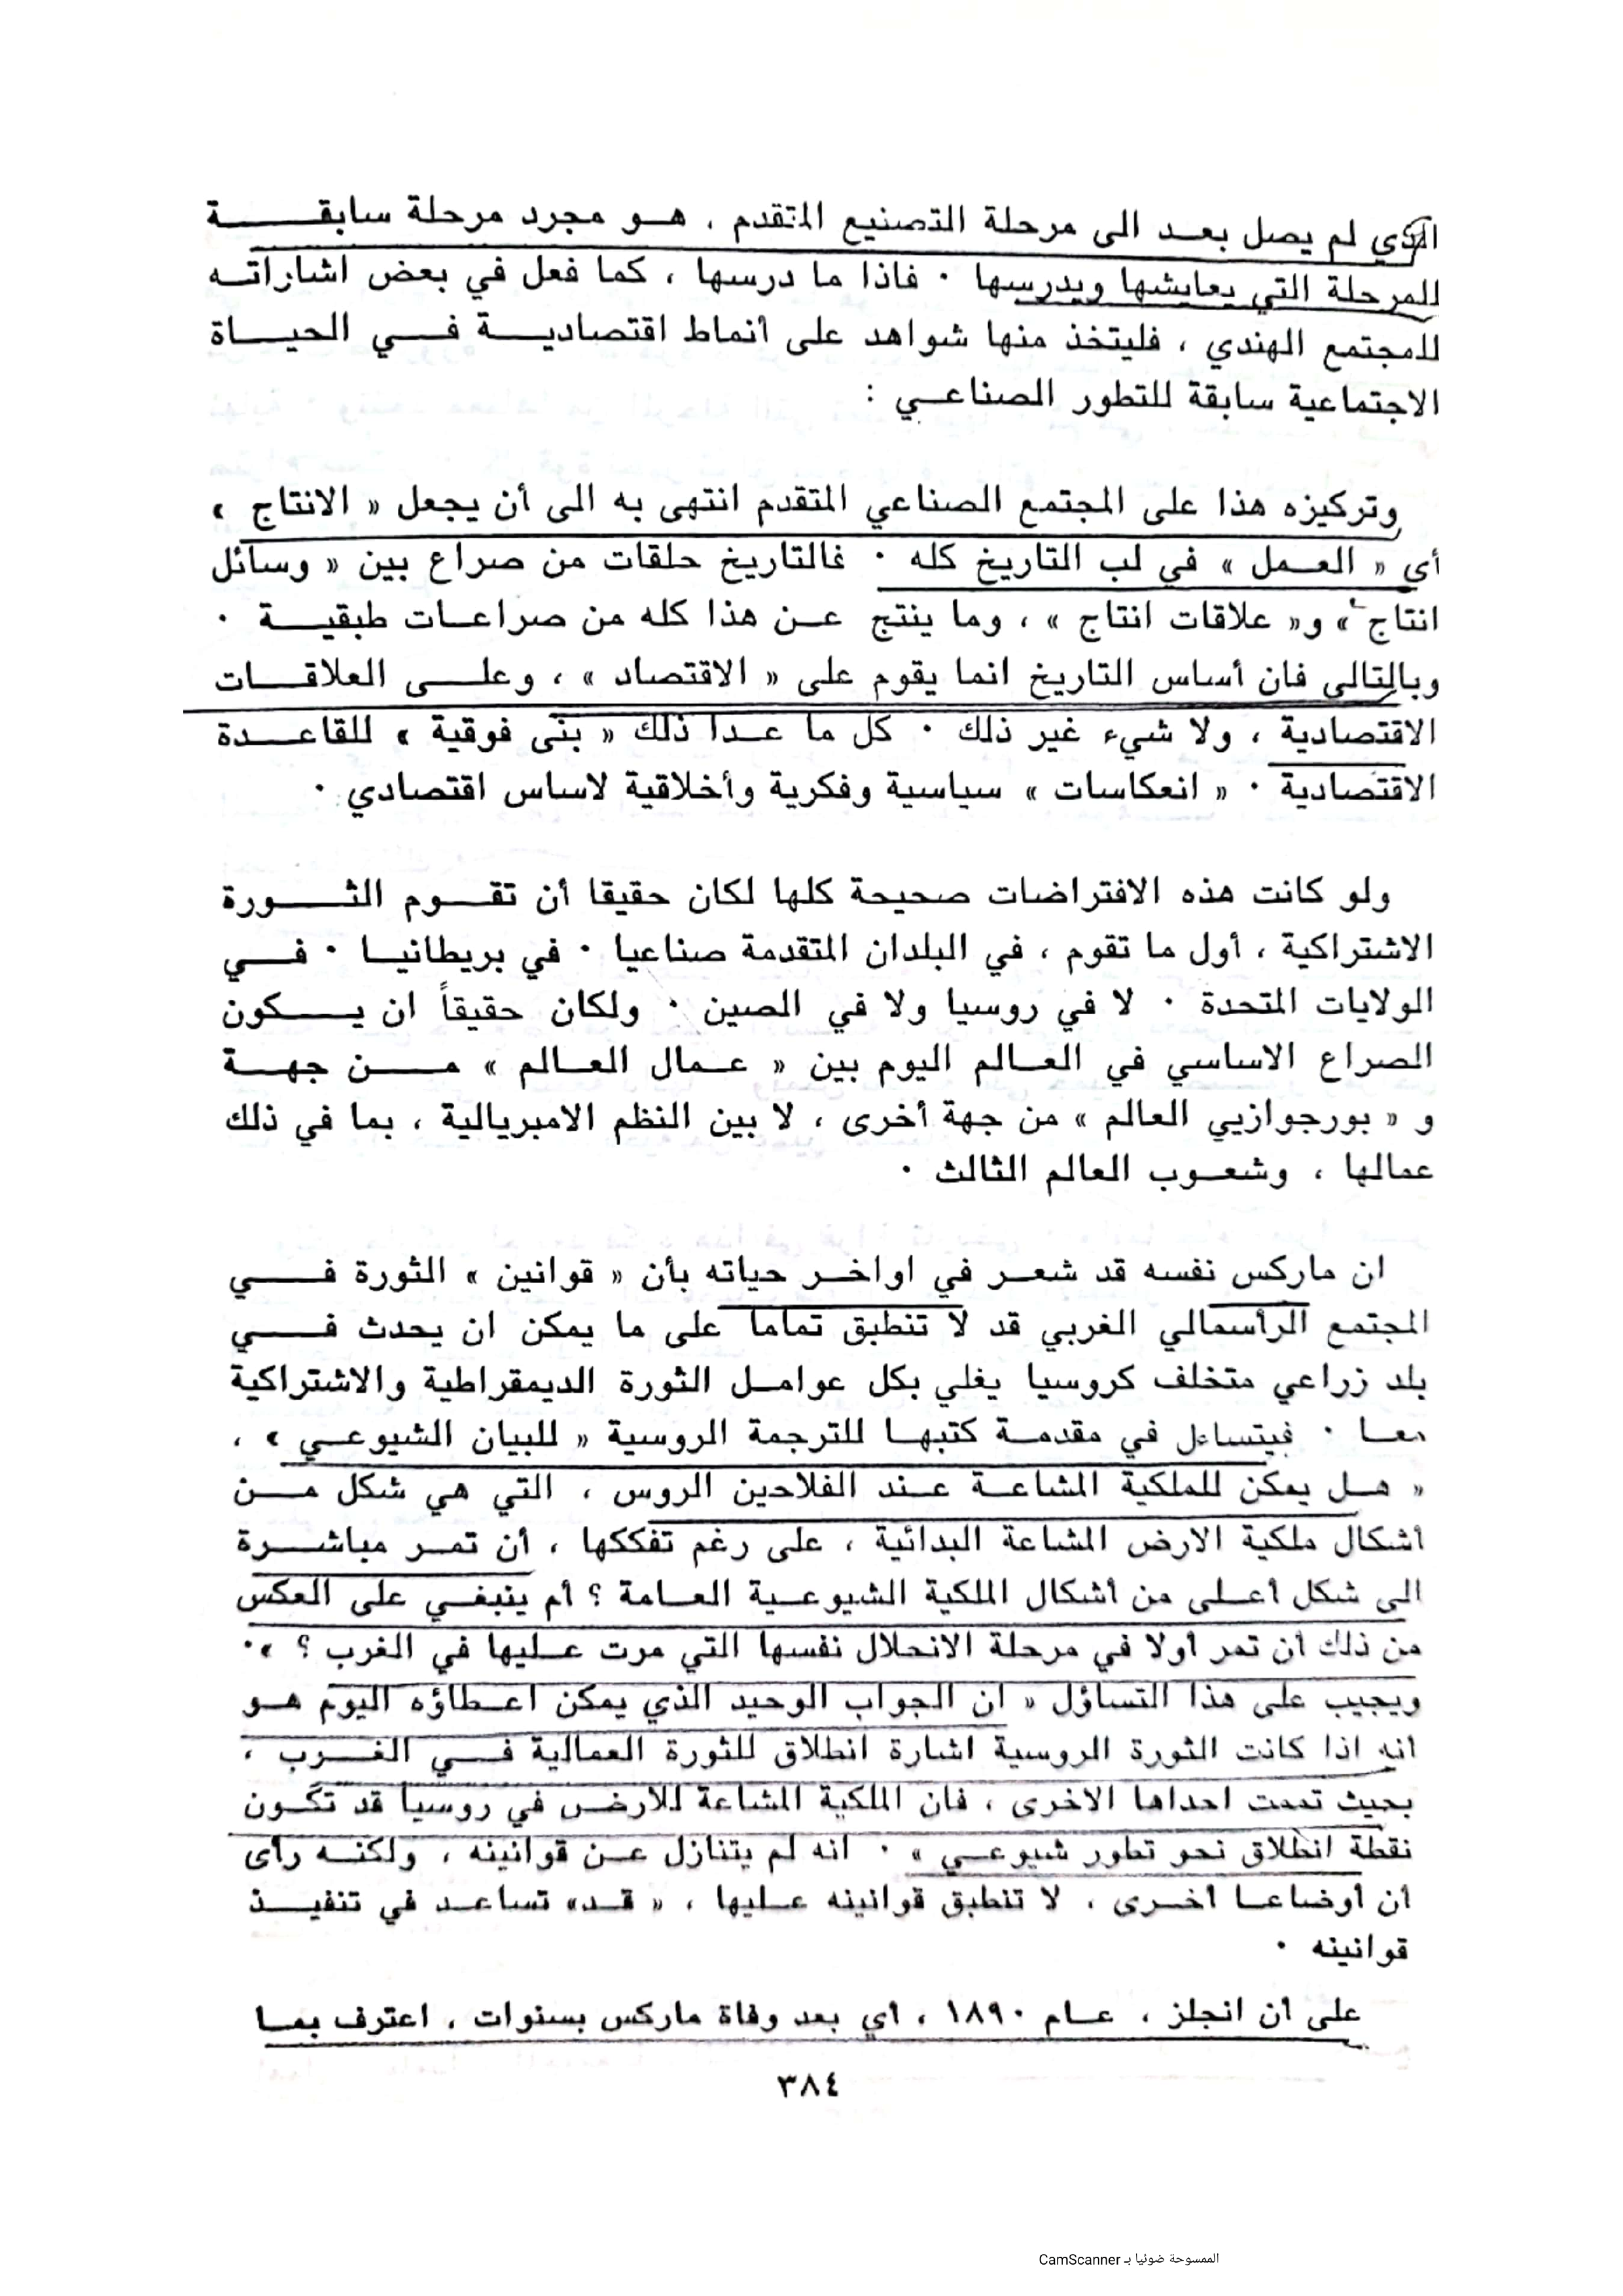 الذي لم يصل بعد الى مرحلة التصنيع المتقدم ، هو مجرد مرحلة سابقة
للمرحلة التي يعايشها ويدرسها . فاذا ما درسها ، كما فعل في بعض اشاراته
للمجتمع الهندي ، فليتخذ منها شواهد على أنماط اقتصادية في الحياة
الاجتماعية سابقة للتطور الصناعي :
وتركيزه هذا على المجتمع الصناعي المتقدم انتهى به الى أن يجعل « الانتاج »
أي « العمل » في لب التاريخ كله . فالتاريخ حلقات من صراع بين « وسائل
انتاج » و« علاقات انتاج » ، وما ينتج عن هذا كله من صراعات طبقية .
وبالتالي فان أساس التاريخ انما يقوم على « الاقتصاد » ، وعلى العلاقات
الاقتصادية ، ولا شيء غير ذلك . كل ما عدا ذلك « بنى فوقية » للقاعدة
الاقتصادية . « انعكاسات » سياسية وفكرية وأخلاقية لاساس اقتصادي .
ولو كانت هذه الافتراضات صحيحة كلها لكان حقيقا أن تقوم الثورة
الاشتراكية ، أول ما تقوم ، في البلدان المتقدمة صناعيا . في بريطانيا . في
الولايات المتحدة . لا في روسيا ولا في الصين . ولكان حقيقاً ان يكون
الصراع الاساسي في العالم اليوم بين « عمال العالم » من جهة
و « بورجوازيي العالم » من جهة أخرى ، لا بين النظم الامبريالية ، بما في ذلك
عمالها ، وشعوب العالم الثالث .
ان ماركس نفسه قد شعر في اواخر حياته بأن « قوانين » الثورة في
المجتمع الرأسمالي الغربي قد لا تنطبق تماما على ما يمكن ان يحدث في
بلد زراعي متخلف كروسيا يغلي بكل عوامل الثورة الديمقراطية والاشتراكية
معا . فيتساءل في مقدمة كتبها للترجمة الروسية « للبيان الشيوعي » ،
« هل يمكن للملكية المشاعة عند الفلاحين الروس ، التي هي شكل من
أشكال ملكية الارض المشاعة البدائية ، على رغم تفككها ، أن تمر مباشرة
الى شكل أعلى من أشكال الملكية الشيوعية العامة ؟ أم ينبغي على العكس
من ذلك أن تمر أولا في مرحلة الانحلال نفسها التي مرت عليها في الغرب ؟ ».
ويجيب على هذا التساؤل « ان الجواب الوحيد الذي يمكن اعطاؤه اليوم هو
انه اذا كانت الثورة الروسية اشارة انطلاق للثورة العمالية في الغرب ،
بحيث تممت احداها الاخرى ، فان الملكية المشاعة للارض في روسيا قد تكون
نقطة انطلاق نحو تطور شيوعي » . انه لم يتنازل عن قوانينه ، ولكنه رأى
أن أوضاعا أخرى ، لا تنطبق قوانينه عليها ، « قد» تساعد في تنفيذ
قوانينه .
على أن انجلز ، عام ١٨٩٠ ، أي بعد وفاة ماركس بسنوات ، اعترف بما
٣٨٤
الممسوحة ضوئيا بـ CamScanner